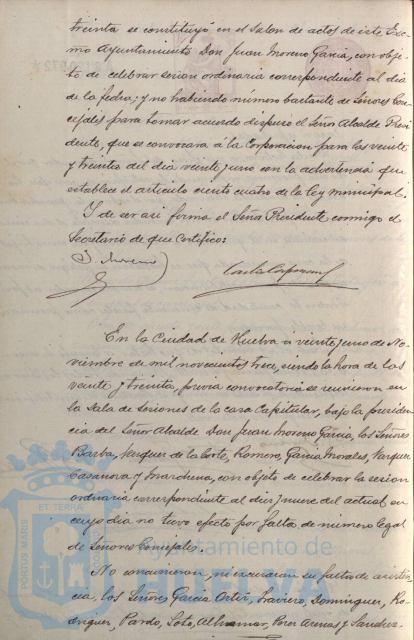 treinta se constituyó en el Salon de actos de este Exc-
mo Ayuntamiento Don Juan Moreno Garcia, con obje-
to de celebrar sesion ordinaria correspondiente al dia
de la fecha; y no habiendo número bastante de Señores Con-
cejales para tomar acuerdo dispuso el Señor Alcalde Presi-
dente, que se convocara á la Corporacion para las veinte
y treinta del dia veinte y uno con la advertencia que
establece el artículo ciento cuatro de la ley municipal.
Y de ser asi firma el Señor Presidente conmigo el
Secretario de que certifico:
J Moreno
En la Ciudad de Huelva a veinte y uno de No-
viembre de mil novecientos trece, siendo la hora de las
veinte y treinta, previa convocatoria se reunieron en
la Sala de Sesiones de la casa Capitular, bajo la presiden-
cia del Señor Alcalde Don Juan Moreno Garcia, los Señores
Barba, Vazquez de la Corte, Romero, Garcia Morales, Vazquez
Casanova y Marchena, con objeto de celebrar la sesion
ordinaria correspondiente al diez y nueve del actual en
cuyo dia no tuvo efecto por falta de número legal
de Señores Concejales.
No concurrieron, ni escusaron su falta de asisten-
cia, los Señores Garcia Ortiz, Traviero, Dominguez, Ro-
driguez, Pardo, Soto, Perez Arenas y Sanchez
PORTUS MARIS ET TERRAE
Ayuntamiento de
HUELVA